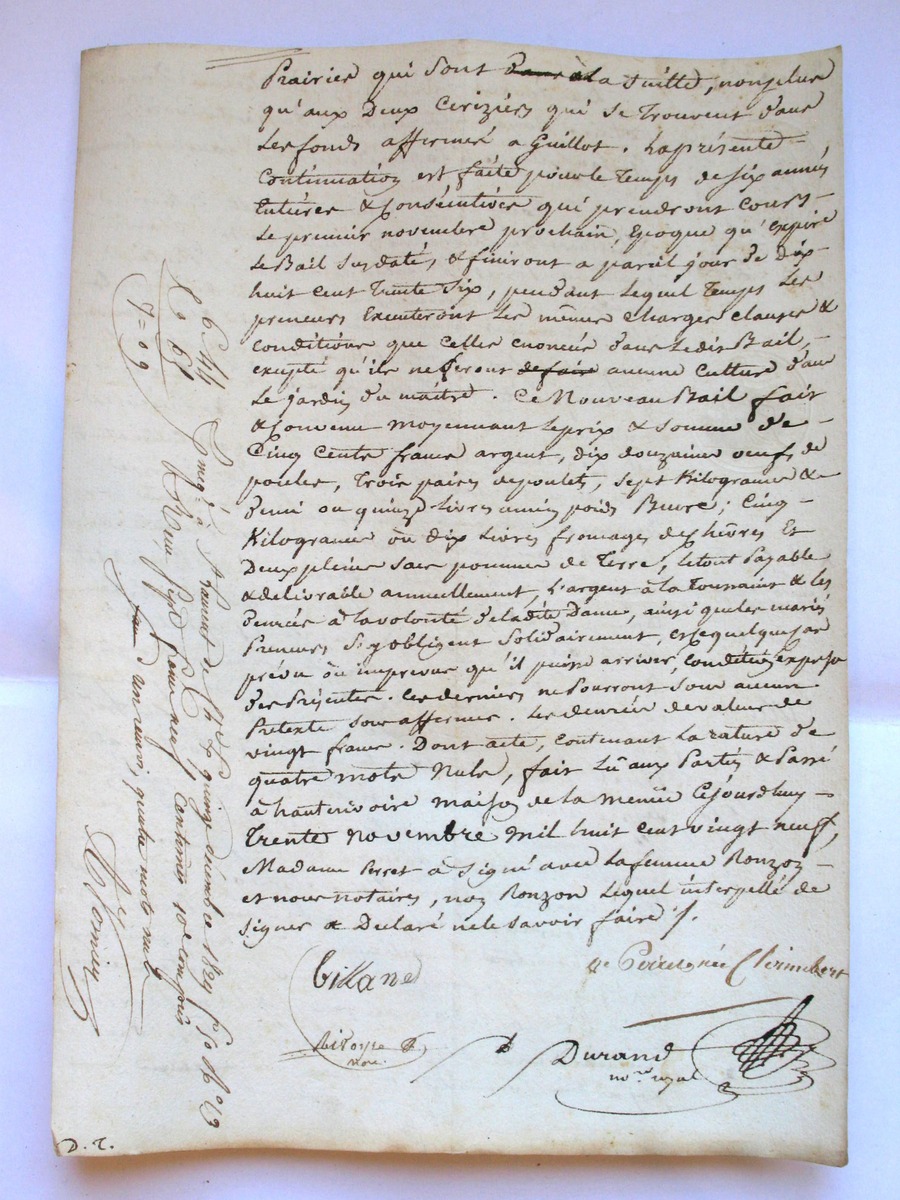 Prairies qui sont dans a la suitte, non plus
qu'aux Deux Ceriziers qui se trouvent dans
les fonds affermés a Guillot. La présente
Continuation est faite pour le temps de six années
Entières & Consécutives qui prendront cours
le premier novembre prochain, Epoque qu'expire
le Bail susdaté, & finiront a pareil jour de dix
huit cent trente six, pendant lequel temps les
preneurs Executeront les mêmes charges clauses &
conditions que celles enoncées dans ledit Bail,
excepté qu'ils ne feront de faire aucune culture dans
le jardin du maitre. Ce Nouveau Bail fait
& Convenu moyennant le prix & somme de
Cinq cents francs argent, dix douzaines oeufs de
poules, trois paires de poulets, sept Kilogrames &
demi ou quinze livres ancien poids Beure; Cinq
Kilogrames ou dix Livres fromages de chèvres Et
Deux pleins sacs pomme de terre, le tout Payable
& delivrable annuellement, L'argent à la Toussaint & les
denrées à la volonté de ladite Dame, ainsi que les mariés
Preneurs s'y obligent solidairement, en quelque cas
prévu ou imprévu qu'il puisse arriver, condition expresse
des Présentes. Ces derniers ne Pourront sous aucun
Prétexte sous affermer. Les denrées de valeur de
vingt francs. Dont acte, contenant la rature de
quatre mots Nuls, fait Lû aux Parties & Passé
à hauterivoire maison de la meme Cejourdhuy
trente Novembre mil huit cent vingt neuf,
Madame Perret a signé avec la femme Ronzon
et nous notaires, non Ronzon lequel interpellé de
signer a Déclaré ne le savoir faire
Durand
nore royal
D. T.
6 44
65
7 = 09
Enregé à St Laurent de
quinze décembre 1829
sept francs neuf centimes 10e compris
sans renvoi, quatre mots nuls